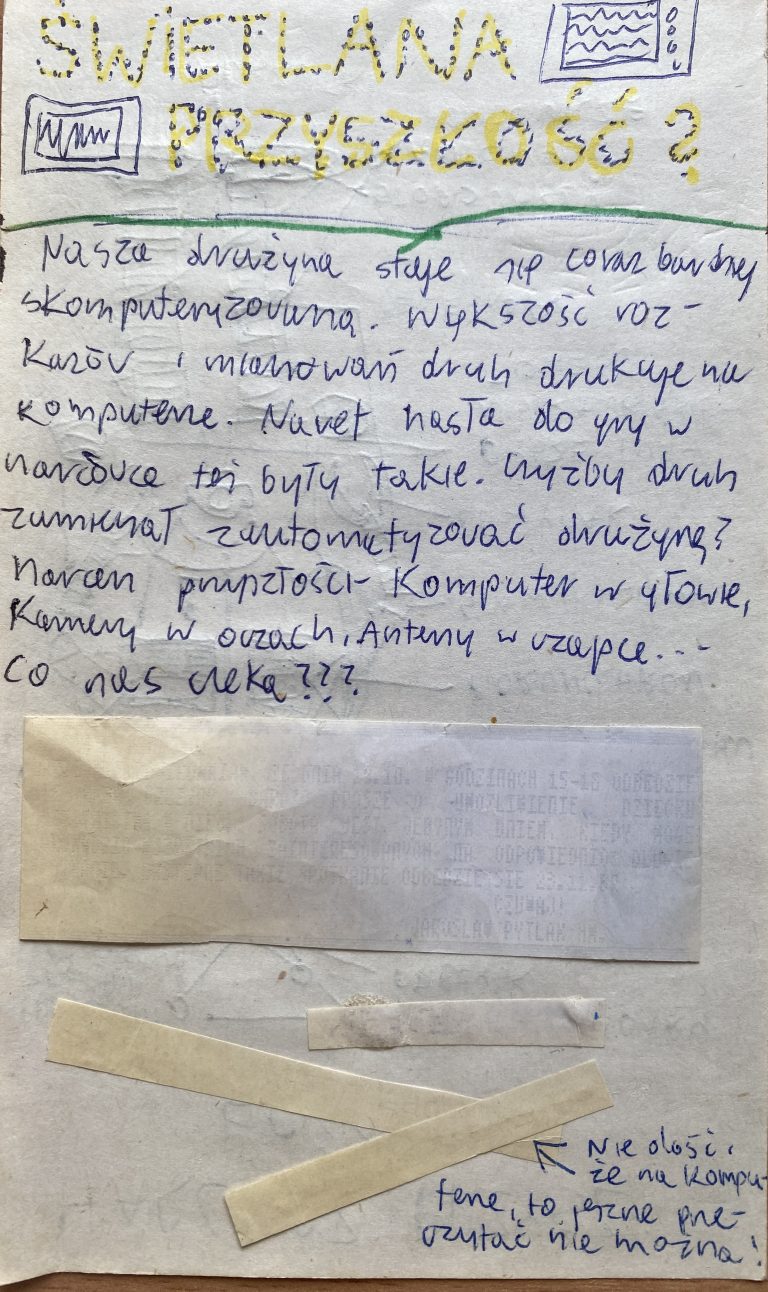 ŚWIETLANA
PRZYSZŁOŚĆ?
Nasza drużyna staje się coraz bardziej
skomputeryzowaną. Większość roz-
kazów i mianowań druh drukuje na
komputerze. Nawet hasła do gry w
narcówce też były takie. Czyżby druh
zamierzał zautomatyzować drużynę?
Harcerz przyszłości - Komputer w głowie,
Kamery w oczach, Anteny w czapce...
Co nas czeka???
DNIA GODZINACH 15-18 ODBĘDZIE
PROSZĘ O UMOŻLIWIENIE DZIECKU
JEST JEDYNYM DNIEM, KIEDY MOGĘ
NA ODPOWIEDNIO
TAKIE SPOTKANIE ODBĘDZIE SIĘ
CZUWAJ!
JAROSŁAW PYTLAK
Nie dość,
że na kompu-
terze, to jeszcze prze-
czytać nie można!